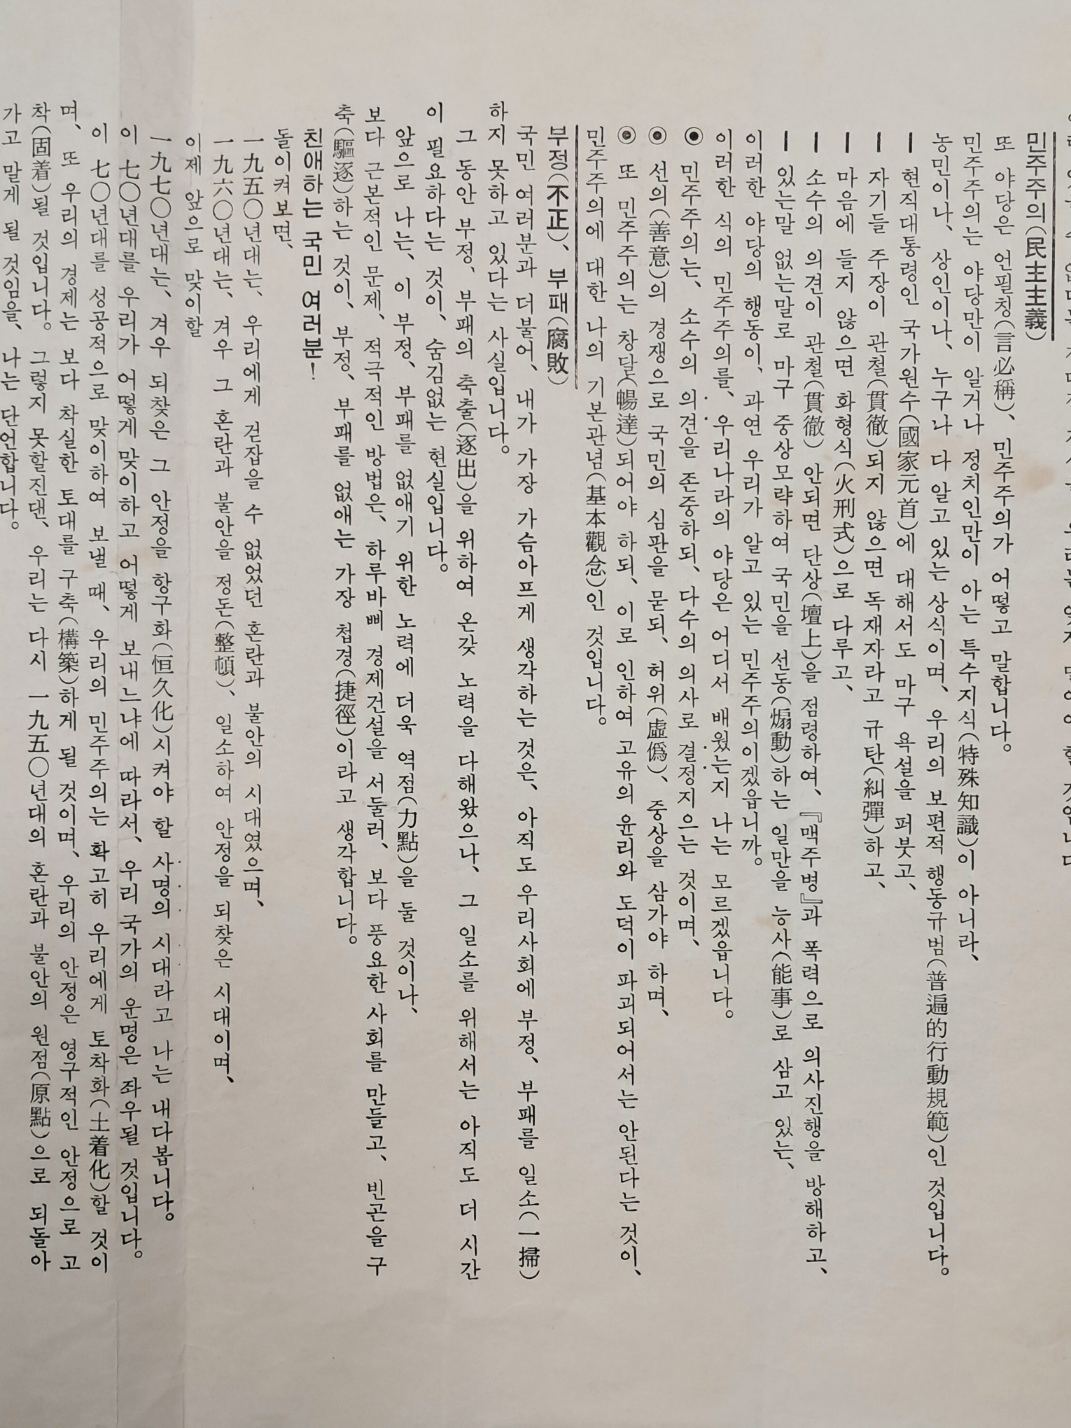 민주주의(民主主義)
또 야당은 언필칭(言必稱)、 민주주의가 어떻고 말합니다。
민주주의는 야당만이 알거나 정치인만이 아는 특수지식(特殊知識)이 아니라、
농민이나、 상인이나、 누구나 다 알고 있는 상식이며、 우리의 보편적 행동규범(普遍的行動規範)인 것입니다。
ー 현직대통령인 국가원수(國家元首)에 대해서도 마구 욕설을 퍼붓고、
ー 자기들 주장이 관철(貫徹)되지 않으면 독재자라고 규탄(糾彈)하고、
ー 마음에 들지 않으면 화형식(火刑式)으로 다루고、
ー 소수의 의견이 관철(貫徹) 안되면 단상(壇上)을 점령하여、 『맥주병』과 폭력으로 의사진행을 방해하고、
ー 있는말 없는말로 마구 중상모략하여 국민을 선동(煽動)하는 일만을 능사(能事)로 삼고 있는、
이러한 야당의 행동이、 과연 우리가 알고 있는 민주주의이겠읍니까。
이러한 식의 민주주의를、 우리나라의 야당은 어디서 배웠는지 나는 모르겠읍니다。
◉ 민주주의는、 소수의 의견을 존중하되、 다수의 의사로 결정지으는 것이며、
◉ 선의(善意)의 경쟁으로 국민의 심판을 묻되、 허위(虛僞)、 중상을 삼가야 하며、
◉ 또 민주주의는 창달(暢達)되어야 하되、 이로 인하여 고유의 윤리와 도덕이 파괴되어서는 안된다는 것이、
민주주의에 대한 나의 기본관념(基本觀念)인 것입니다。
부정(不正)、 부패(腐敗)
국민 여러분과 더불어、 내가 가장 가슴아프게 생각하는 것은、 아직도 우리사회에 부정、 부패를 일소(一掃)
하지 못하고 있다는 사실입니다。
그 동안 부정、 부패의 축출(逐出)을 위하여 온갖 노력을 다해왔으나、 그 일소를 위해서는 아직도 더 시간
이 필요하다는 것이、 숨김없는 현실입니다。
앞으로 나는、 이 부정、 부패를 없애기 위한 노력에 더욱 역점(力點)을 둘 것이나、
보다 근본적인 문제、 적극적인 방법은、 하루바삐 경제건설을 서둘러、 보다 풍요한 사회를 만들고、 빈곤을 구
축(驅逐)하는 것이、 부정、 부패를 없애는 가장 첩경(捷徑)이라고 생각합니다。
친애하는 국민 여러분!
돌이켜 보면、
一九五○년대는、 우리에게 걷잡을 수 없었던 혼란과 불안의 시대였으며、
一九六○년대는、 겨우 그 혼란과 불안을 정돈(整頓)、 일소하여 안정을 되찾은 시대이며、
이제 앞으로 맞이할
一九七○년대는、 겨우 되찾은 그 안정을 항구화(恒久化)시켜야 할 사명의 시대라고 나는 내다봅니다。
이 七○년대를 우리가 어떻게 맞이하고 어떻게 보내느냐에 따라서、 우리 국가의 운명은 좌우될 것입니다。
이 七○년대를 성공적으로 맞이하여 보낼 때、 우리의 민주주의는 확고히 우리에게 토착화(土着化)할 것이
며、 또 우리의 경제는 보다 착실한 토대를 구축(構築)하게 될 것이며、 우리의 안정은 영구적인 안정으로 고
착(固着)될 것입니다。 그렇지 못할진댄、 우리는 다시 一九五○년대의 혼란과 불안의 원점(原點)으로 되돌아
가고 말게 될 것임을、 나는 단언합니다。